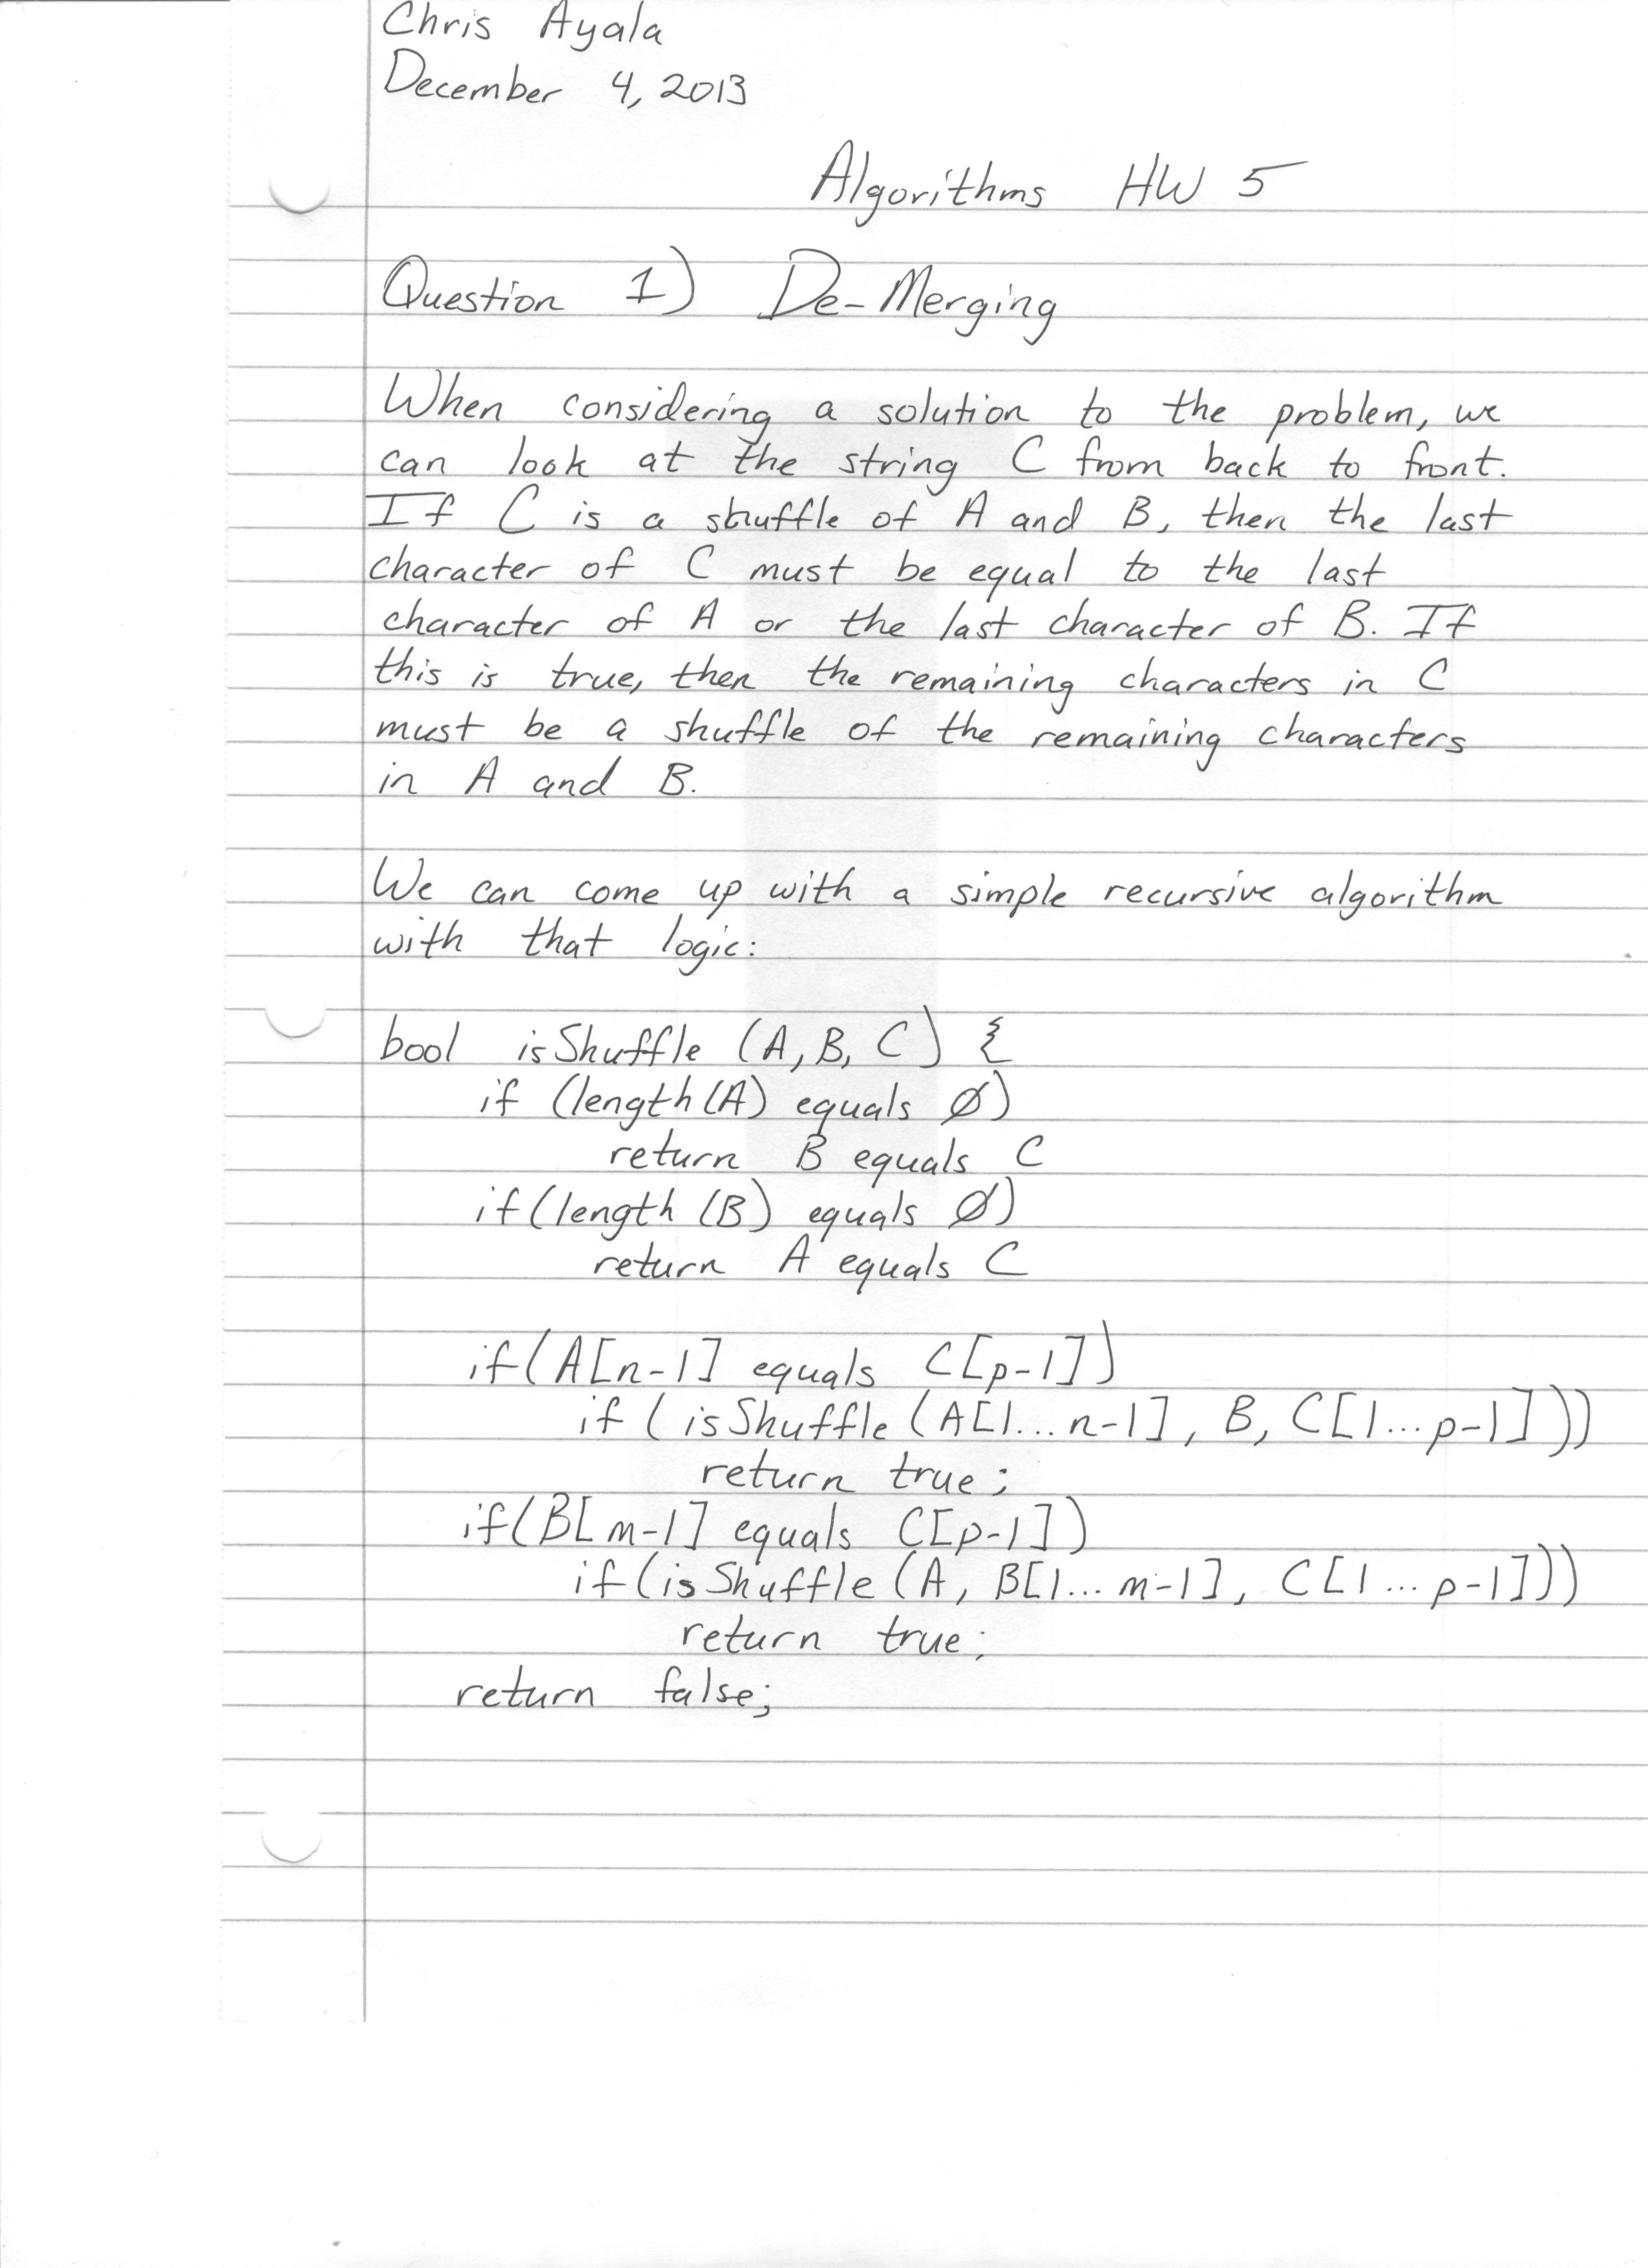 Chris Ayala
December 4, 2013
Algorithms HW 5
Question 1) De-Merging
When considering a solution to the problem, we
can look at the string C from back to front.
If C is a shuffle of A and B, then the last
character of C must be equal to the last
character of A or the last character of B. If
this is true, then the remaining characters in C
must be a shuffle of the remaining characters
in A and B.
We can come up with a simple recursive algorithm
with that logic:
bool isShuffle (A, B, C) {
if (length(A) equals Ø)
return B equals C
if (length (B) equals Ø)
return A equals C
if (A[n-1] equals C[p-1])
if (isShuffle (A[1...n-1], B, C[1...p-1]))
return true;
if (B[m-1] equals C[p-1])
if (isShuffle (A, B[1...m-1], C[1...p-1]))
return true;
return false;